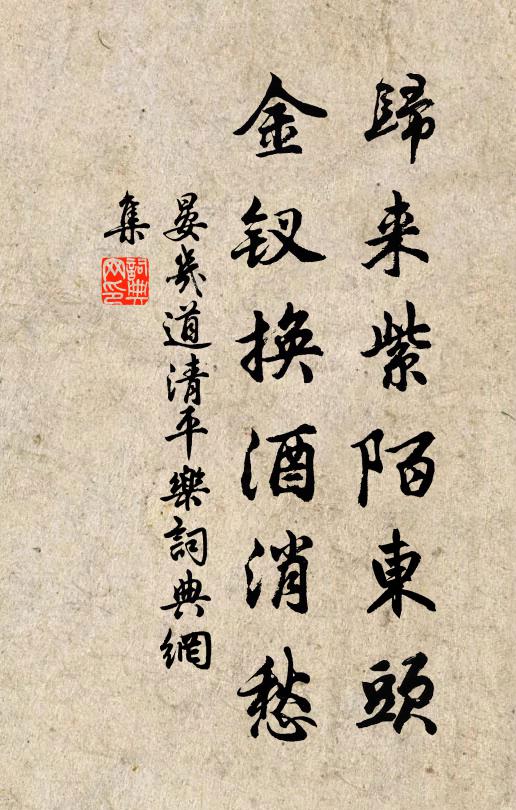 歸来紫陌東頭
金釵換酒消愁
晏幾道清平樂詞典網
集
詞典网印